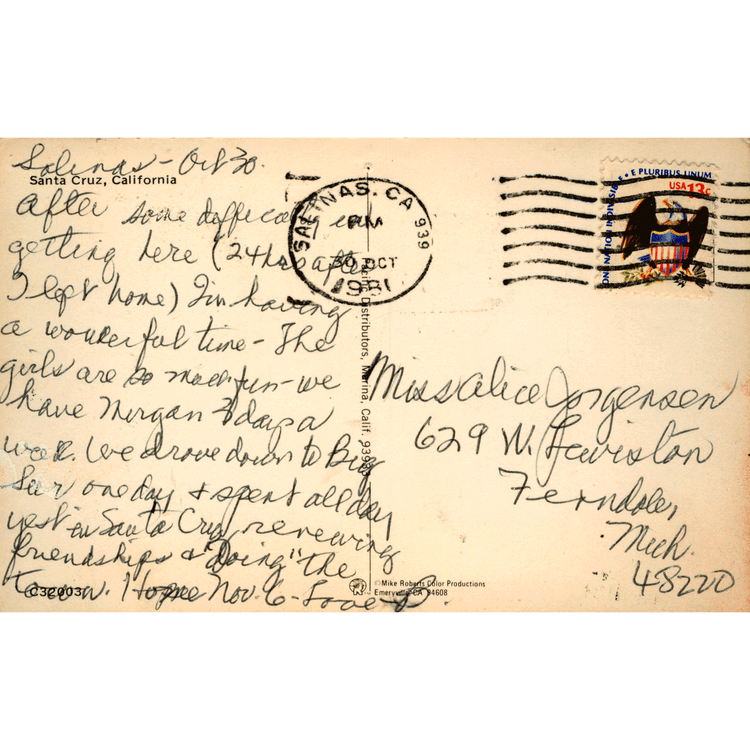 Salinas - Oct 30.
Santa Cruz, California
After some difficulty in
getting here (24 hrs after
I left home) I'm having
a wonderful time - The
girls are so much fun - we
have Morgan 3 days a
week. We drove down to Big
Sur one day & spent all day
yest in Santa Cruz, renewing
friendships & "doing" the
town. Home Nov. 6 - Love
C32003
SALINAS, CA 939
PM
30 OCT
1981
Distributors, Marina, Calif. 9393
©Mike Roberts Color Productions
Emeryville CA 94608
ONE NATION INDIVISIBLE • E PLURIBUS UNUM
USA 13c
Miss Alice Jorgensen
629 W. Lewiston
Ferndale,
Mich.
48220